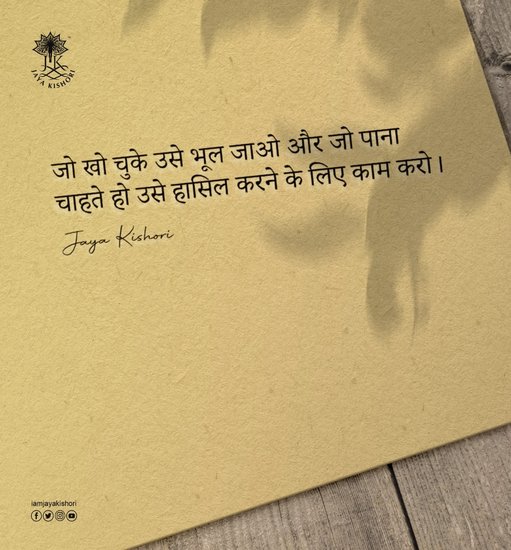 JK
JAYA KISHORI
जो खो चुके उसे भूल जाओ और जो पाना
चाहते हो उसे हासिल करने के लिए काम करो।
Jaya Kishori
iamjayakishori